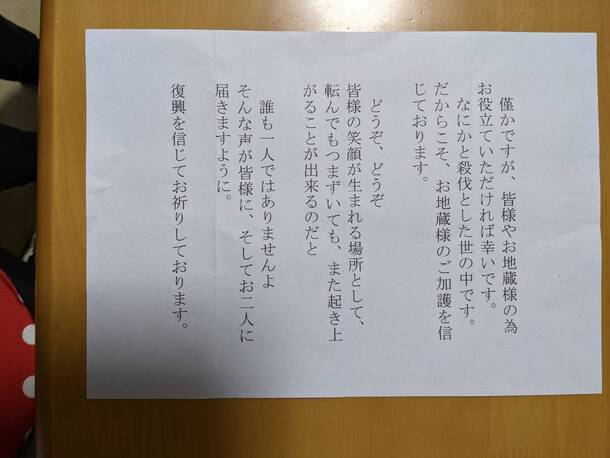 僅かですが、皆様やお地蔵様の為
お役立ていただければ幸いです。
なにかと殺伐とした世の中です。
だからこそ、お地蔵様のご加護を信
じております。
どうぞ、どうぞ
皆様の笑顔が生まれる場所として、
転んでもつまずいても、また起き上
がることが出来るのだと
誰も一人ではありませんよ
そんな声が皆様に、そしてお二人に
届きますように。
復興を信じてお祈りしております。